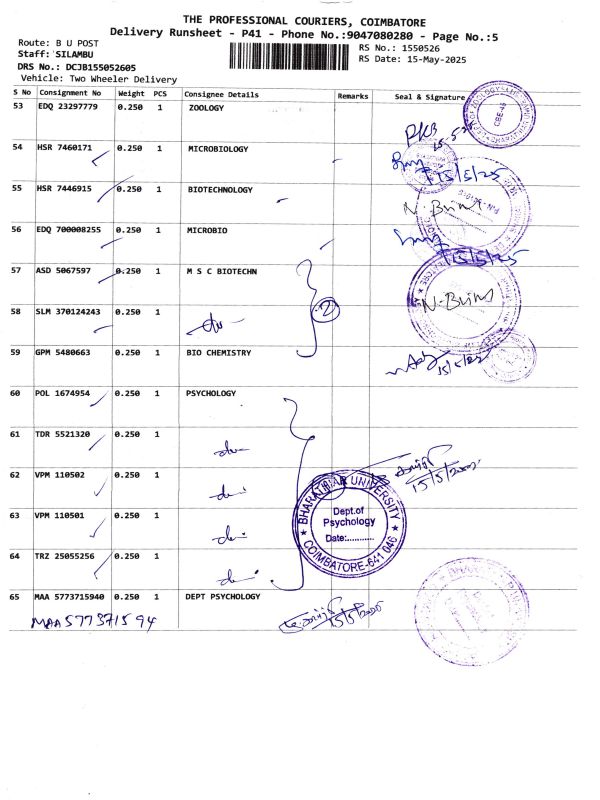 THE PROFESSIONAL COURIERS, COIMBATORE
Delivery Runsheet - P41 - Phone No.:9047080280 - Page No.:5
Route: B U POST
Staff: SILAMBU
RS No.: 1550526
RS Date: 15-May-2025
DRS No.: DCJB155052605
Vehicle: Two Wheeler Delivery
S No Consignment No Weight PCS Consignee Details Remarks Seal & Signature
53 EDQ 23297779 0.250 1 ZOOLOGY
54 HSR 7460171 0.250 1 MICROBIOLOGY
15/5/25
55 HSR 7446915 0.250 1 BIOTECHNOLOGY
56 EDQ 700008255 0.250 1 MICROBIO
15/5/25
57 ASD 5067597 0.250 1 M S C BIOTECHN
58 SLM 370124243 0.250 1
2
59 GPM 5480663 0.250 1 BIO CHEMISTRY
15/5/25
60 POL 1674954 0.250 1 PSYCHOLOGY
61 TDR 5521320 0.250 1
62 VPM 110502 0.250 1
15/5/2025
63 VPM 110501 0.250 1
BHARATHIAR UNIVERSITY
Dept.of
Psychology
Date:...........
COIMBATORE-641 046
64 TRZ 25055256 0.250 1
65 MAA 5773715940 0.250 1 DEPT PSYCHOLOGY
MAA577371594
15/5/2025